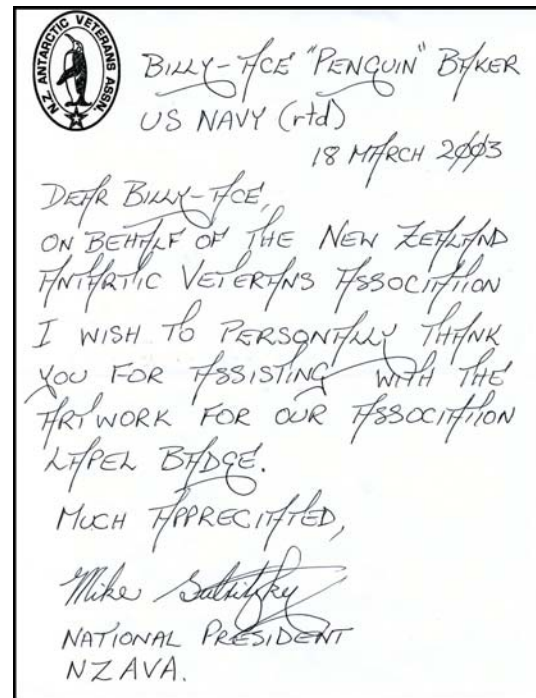 N.Z. ANTARCTIC VETERANS ASSN.
BILLY-ACE "PENGUIN" BAKER
US NAVY (rtd)
18 MARCH 2003
DEAR BILLY-ACE,
ON BEHALF OF THE NEW ZEALAND
ANTARTIC VETERANS ASSOCIATION
I WISH TO PERSONALLY THANK
YOU FOR ASSISTING WITH THE
ARTWORK FOR OUR ASSOCIATION
LAPEL BADGE.
MUCH APPRECIATED,
Mike Subritzky
NATIONAL PRESIDENT
NZAVA.